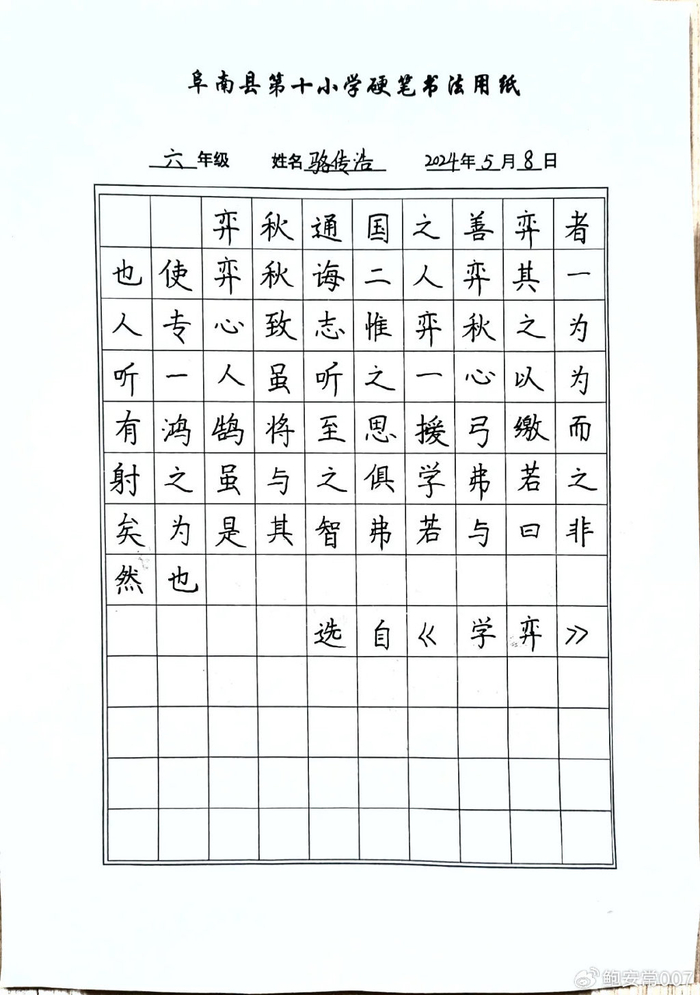 阜南县第十小学硬笔书法用纸
六年级 姓名骆传浩 2024年5月8日
弈秋通国之善弈者
也使弈秋诲二人弈其一
人专心致志惟弈秋之为
听一人虽听之一心以为
有鸿鹄将至思援弓缴而
射之虽与之俱学弗若之
矣为是其智弗若与曰非
然也
选自《学弈》
@鲍安常007